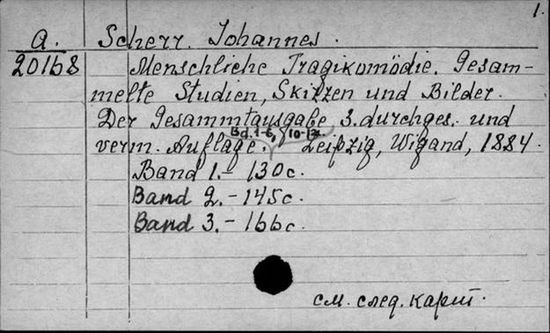 1.
A. Scherr. Johannes.
20168 Menschliche Tragikomödie. Gesam-
melte Studien, Skizzen und Bilder.
Der Gesammtausgabe 3. durchges. und
Bd. 1-6, 10-12.
verm. Auflage. Leipzig, Wigand, 1884.
Band 1. - 130c.
Band 2. - 145c.
Band 3. - 166c.
см. след. карт.